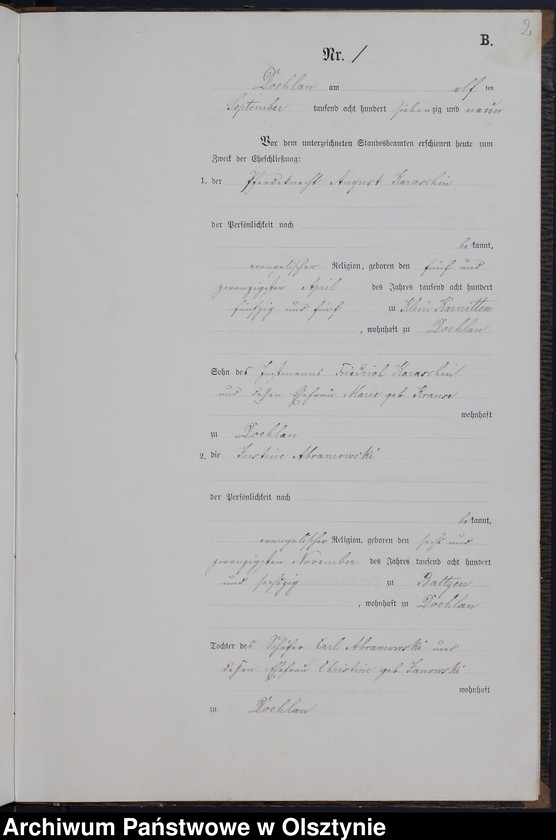 2
B.
Nr. 1
Döhlau am elf ten
September tausend acht hundert siebenzig und neun
Vor dem unterzeichneten Standesbeamten erschienen heute zum
Zweck der Eheschließung:
1. der Pferdeknecht August Karaschin
der Persönlichkeit nach
be kannt,
evangelischer Religion, geboren den fünf und
zwanzigsten April des Jahres tausend acht hundert
fünfzig und fünf zu Klein Karnitten
, wohnhaft zu Döhlau
Sohn des Instmanns Friedrich Karaschin
und dessen Ehefrau Marie geb Krause
wohnhaft
zu Döhlau
2. die Justine Abramowski
der Persönlichkeit nach
be kannt,
evangelischer Religion, geboren den sechs und
zwanzigsten November des Jahres tausend acht hundert
und sechszig zu
, wohnhaft zu Döhlau
Tochter des Schäfer Carl Abramowski und
dessen Ehefrau Christine geb
wohnhaft
zu Döhlau
Archiwum Państwowe w Olsztynie